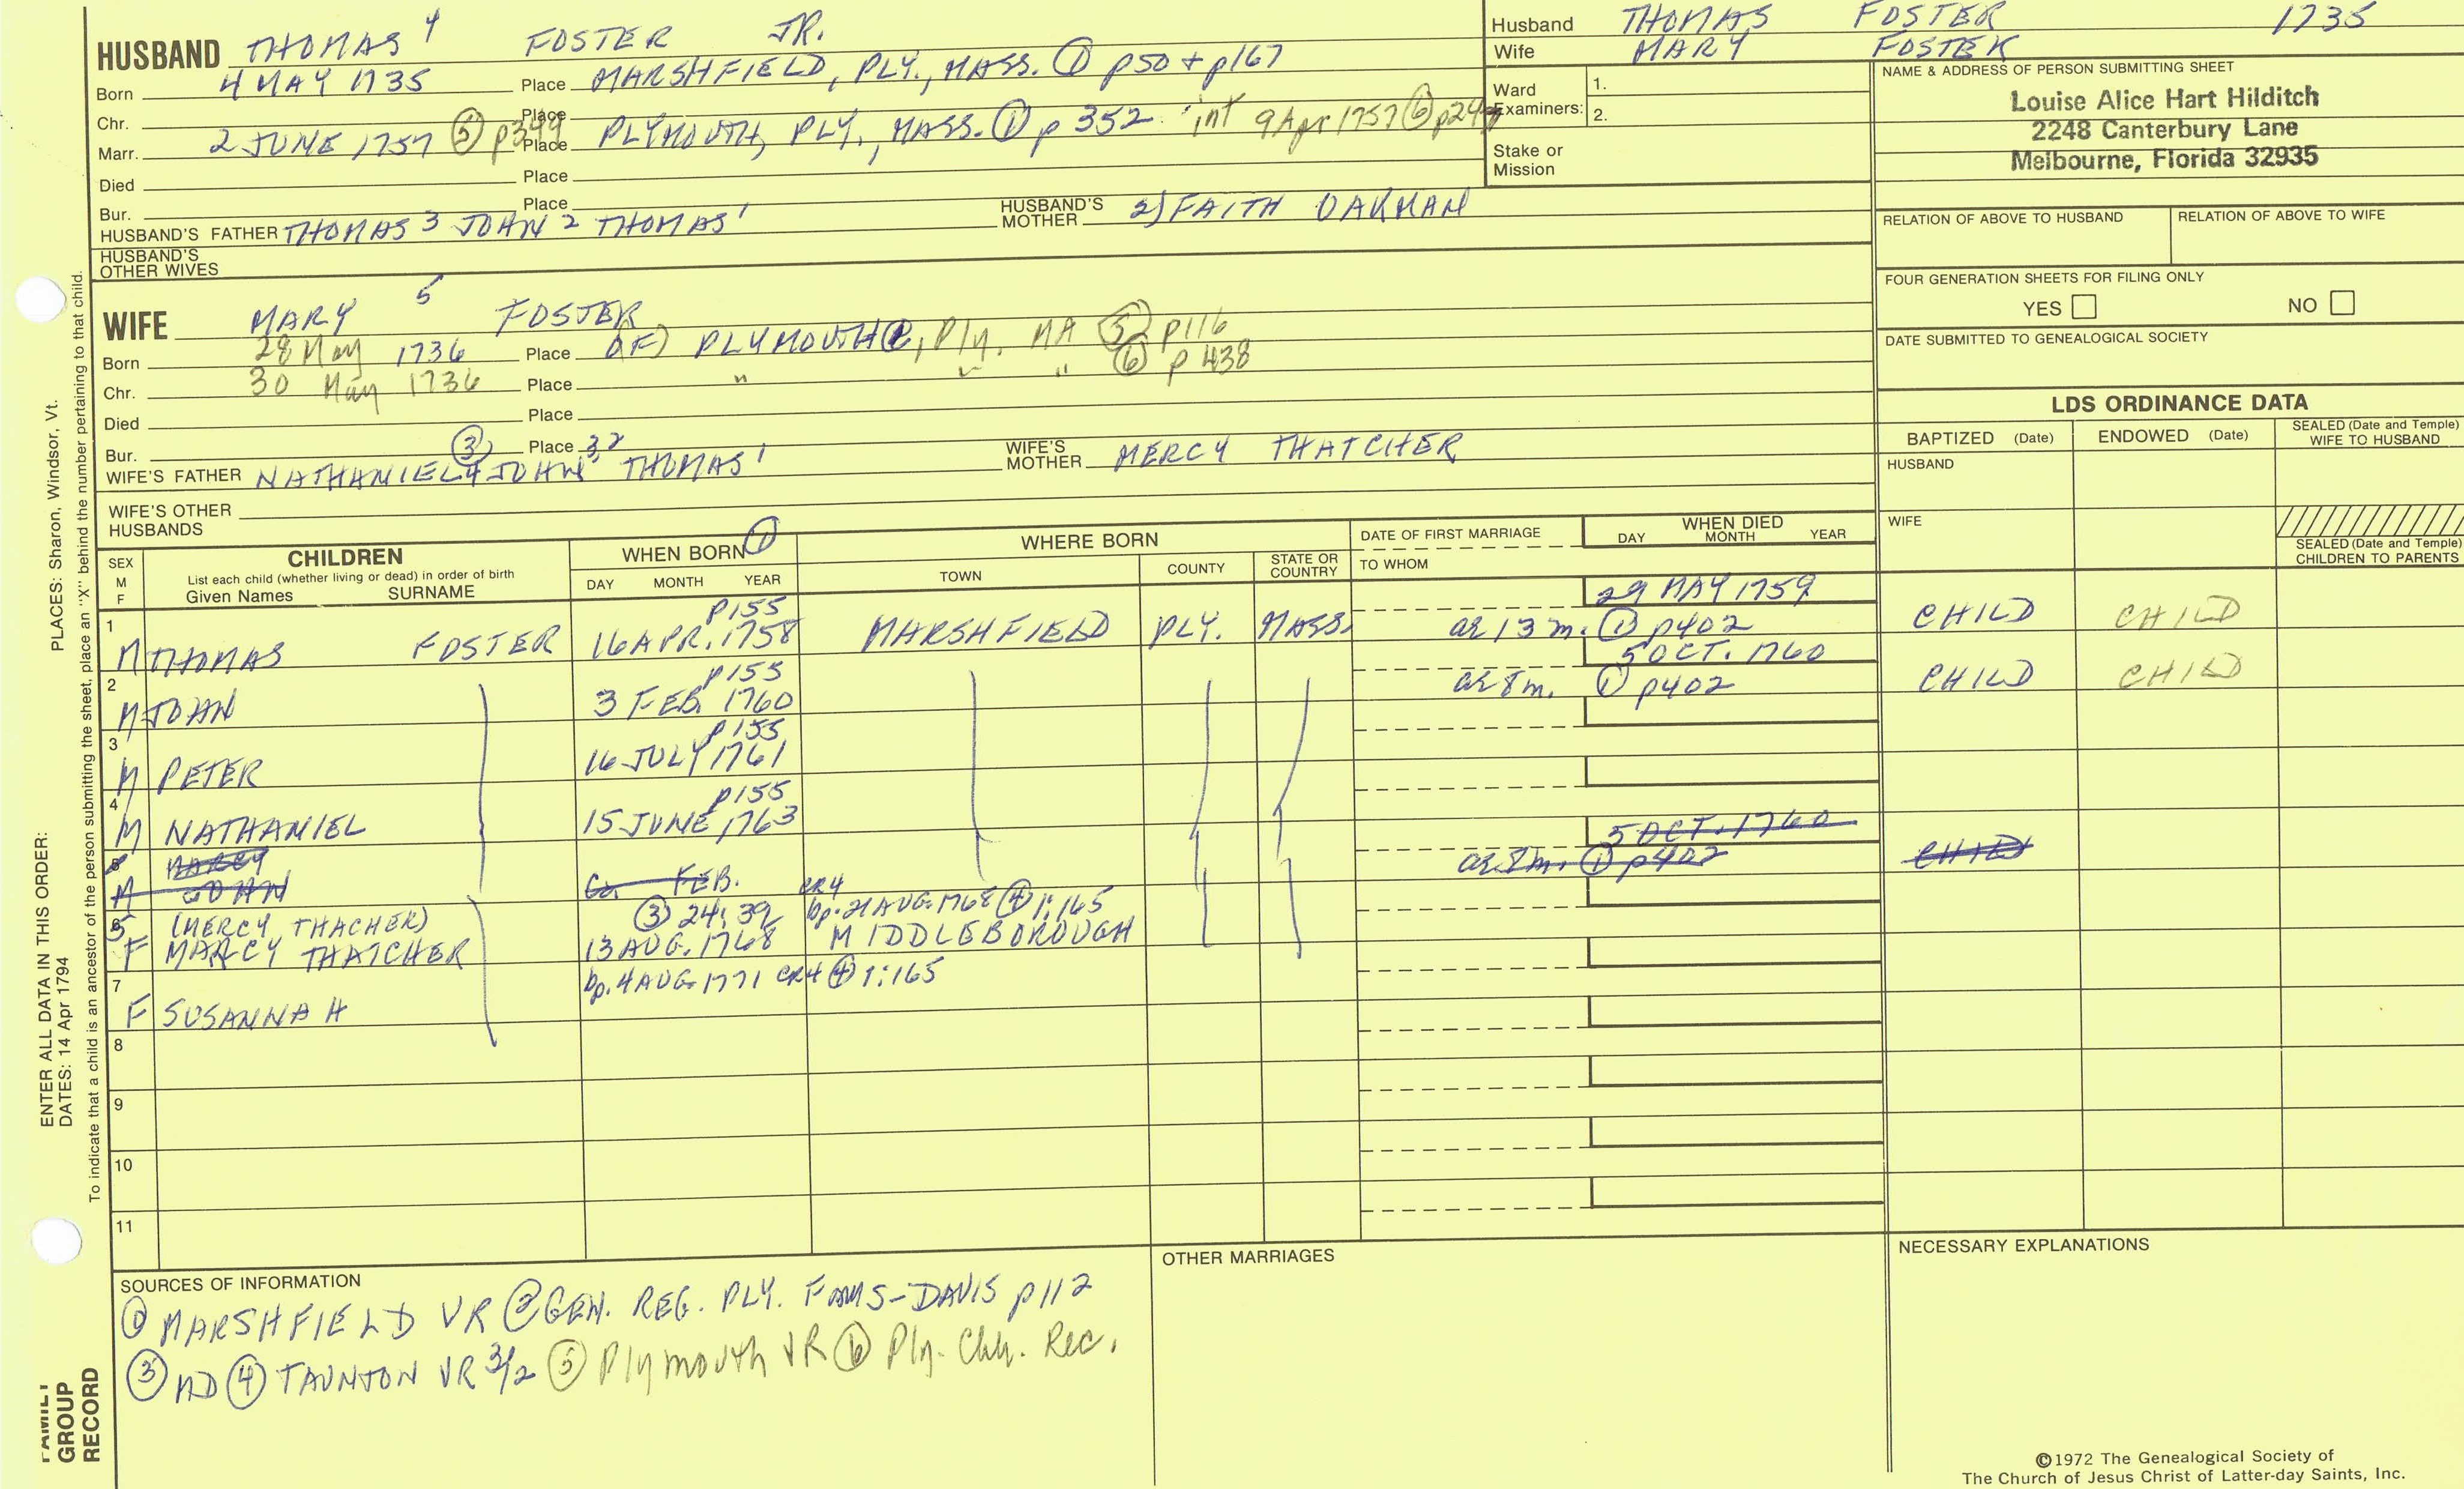 HUSBAND THOMAS 4 FOSTER JR.
Born 4 MAY 1735 Place MARSHFIELD, PLY., MASS. ① p50 + p167
Chr. Place
Marr. 2 JUNE 1757 ⑤ p349 Place PLYMOUTH, PLY., MASS. ① p 352 int 9 Apr 1757 ⑥
Died Place
Bur. Place
HUSBAND'S FATHER THOMAS 3 JOHN 2 THOMAS 1 HUSBAND'S MOTHER 2) FAITH OAKMAN
HUSBAND'S OTHER WIVES
Husband THOMAS FOSTER 1735
Wife MARY FOSTER
Ward Examiners: 1.
2.
Stake or Mission
NAME & ADDRESS OF PERSON SUBMITTING SHEET
Louise Alice Hart Hilditch
2248 Canterbury Lane
Melbourne, Florida 32935
RELATION OF ABOVE TO HUSBAND RELATION OF ABOVE TO WIFE
FOUR GENERATION SHEETS FOR FILING ONLY
YES NO
DATE SUBMITTED TO GENEALOGICAL SOCIETY
WIFE MARY 5 FOSTER
Born 28 May 1736 Place (OF) PLYMOUTH, Ply. MA ⑤ p116
Chr. 30 May 1736 Place " " " ⑥ p 438
Died Place
Bur. Place
WIFE'S FATHER NATHANIEL 4 ③ JOHN 3, 2 THOMAS 1 WIFE'S MOTHER MERCY THATCHER
WIFE'S OTHER HUSBANDS
LDS ORDINANCE DATA
BAPTIZED (Date) ENDOWED (Date) SEALED (Date and Temple) WIFE TO HUSBAND
HUSBAND
WIFE
SEALED (Date and Temple) CHILDREN TO PARENTS
SEX M F CHILDREN List each child (whether living or dead) in order of birth Given Names SURNAME
WHEN BORN ① DAY MONTH YEAR
WHERE BORN TOWN COUNTY STATE OR COUNTRY
DATE OF FIRST MARRIAGE TO WHOM
WHEN DIED DAY MONTH YEAR
p155 29 MAY 1759
1 M THOMAS FOSTER 16 APR. 1758 MARSHFIELD PLY. MASS. ae 13 m. ① p402 CHILD CHILD
p155 5 OCT. 1760
2 M JOHN 3 FEB. 1760 ae 8m. ① p402 CHILD CHILD
p155
3 M PETER 16 JULY 1761
p155
4 M NATHANIEL 15 JUNE 1763
MARCY 5 OCT. 1760
M JOHN Ca. FEB. ae 8m. ① p402 CHILD
5 (MERCY THACHER) ③ 24:39 CR4 bp. 21 AUG. 1768 ④ 1:165
F MARCY THATCHER 13 AUG. 1768 MIDDLEBOROUGH
7 bp. 4 AUG. 1771 CR4 ④ 1:165
F SUSANNA H
8
9
10
11
SOURCES OF INFORMATION
① MARSHFIELD VR ② GEN. REG. PLY. FAMS-DAVIS p112
③ MD ④ TAUNTON VR 3/2 ⑤ Plymouth VR ⑥ Ply. Chh. Rec.
OTHER MARRIAGES
NECESSARY EXPLANATIONS
©1972 The Genealogical Society of
The Church of Jesus Christ of Latter-day Saints, Inc.
ENTER ALL DATA IN THIS ORDER:
DATES: 14 Apr 1794 PLACES: Sharon, Windsor, Vt.
To indicate that a child is an ancestor of the person submitting the sheet, place an "X" behind the number pertaining to that child.
FAMILY
GROUP
RECORD